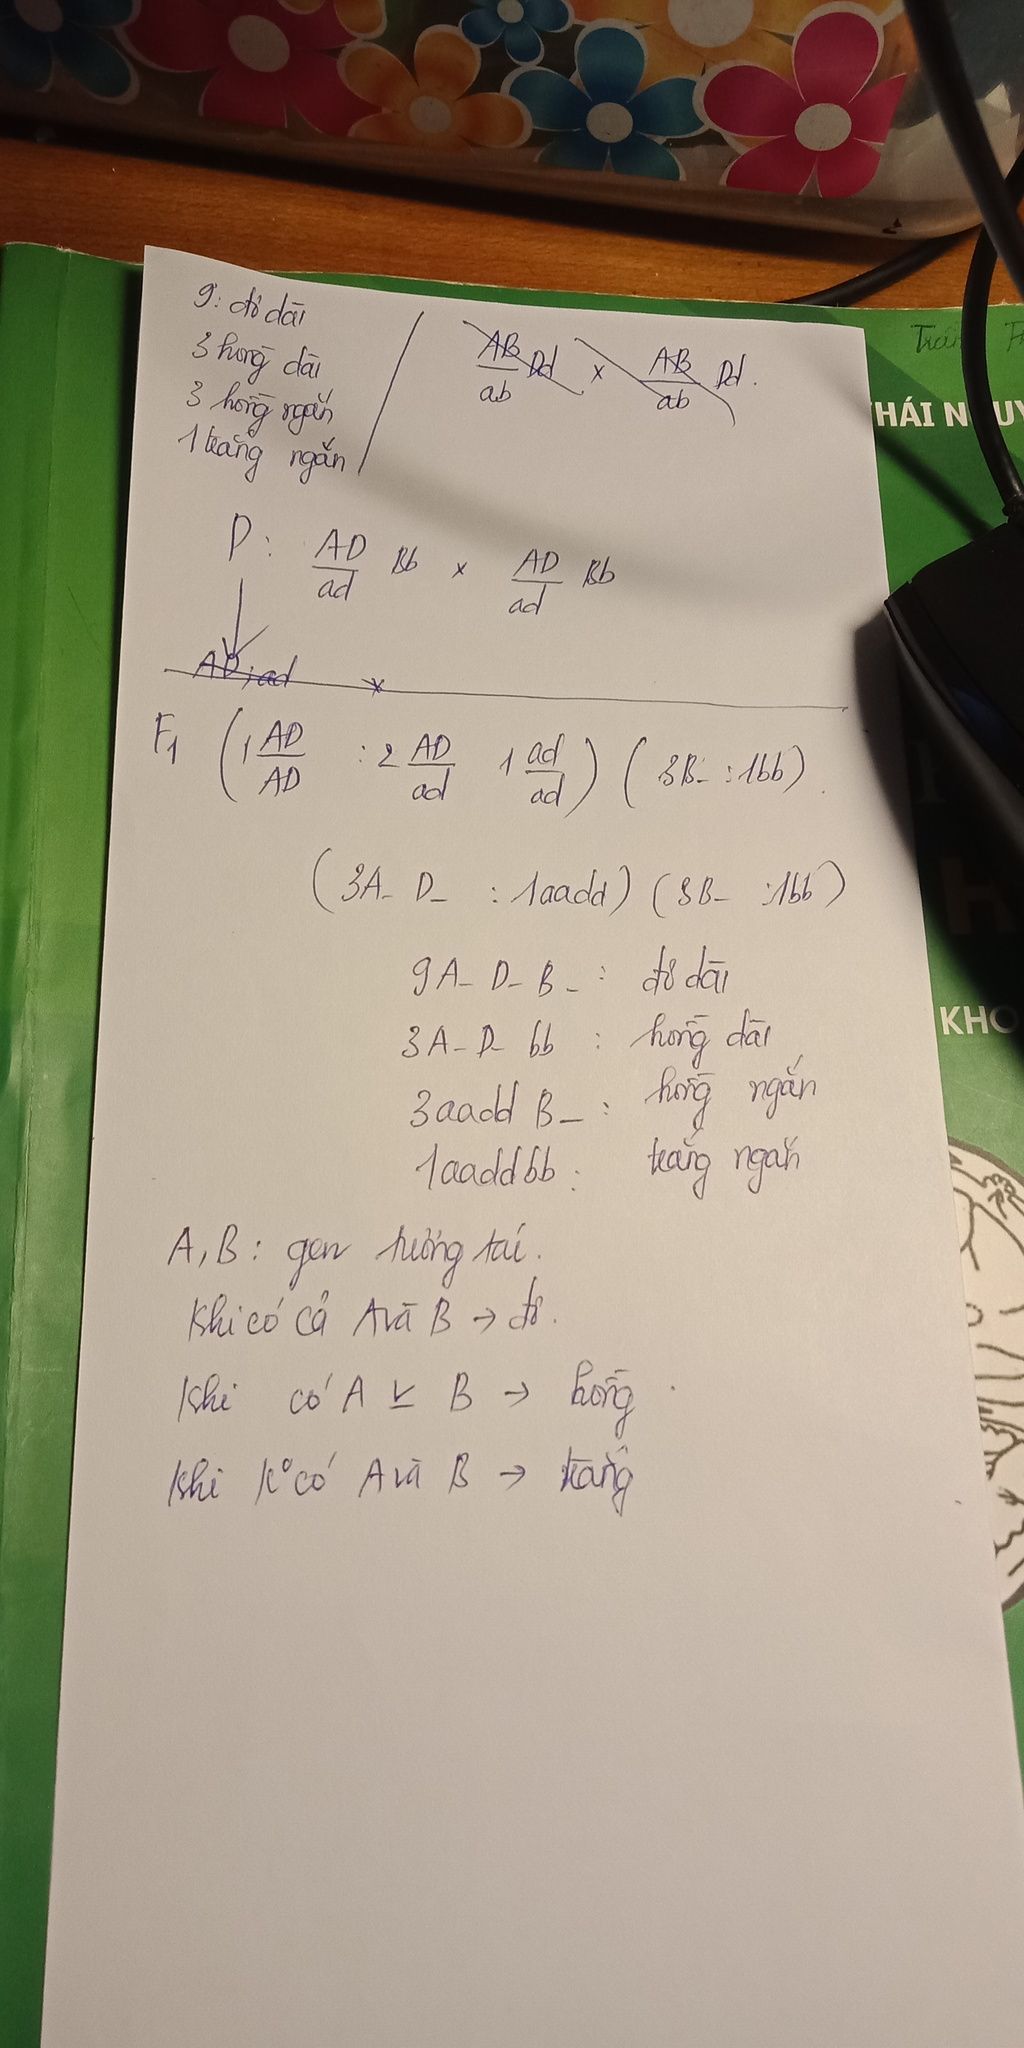 9: đỏ dài
3 hồng dài
3 hồng ngắn
1 trắng ngắn
AB/ab Dd x AB/ab Dd.
P: AD/ad Bb x AD/ad Bb
AD; ad x
F1 (1 AD/AD : 2 AD/ad 1 ad/ad) (3B- : 1bb)
(3A- D- : 1aadd) (3B- : 1bb)
9A- D- B- : đỏ dài
3A- D- bb : hồng dài
3aadd B- : hồng ngắn
1aaddbb : trắng ngắn
A, B: gen tương tác.
Khi có cả A và B → đỏ.
Khi có A v B → hồng
Khi k° có A và B → trắng
HÁI NGUY
KHO